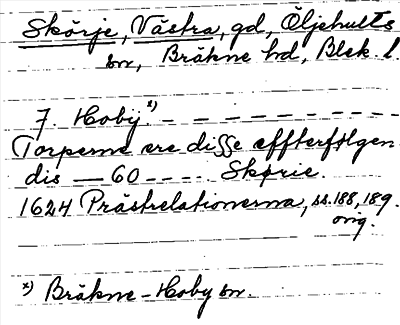 Skörje, Västra, gd, Öljehults
sn, Bräkne hd, Blek. l.
7. Hoby.x) – – – – – – – – –
Torperne ere disse effterfølgen
dis — 60 – – – – Skørie.
1624 Prästrelationerna, ss. 188, 189.
orig.
x) Bräkne-Hoby sn.